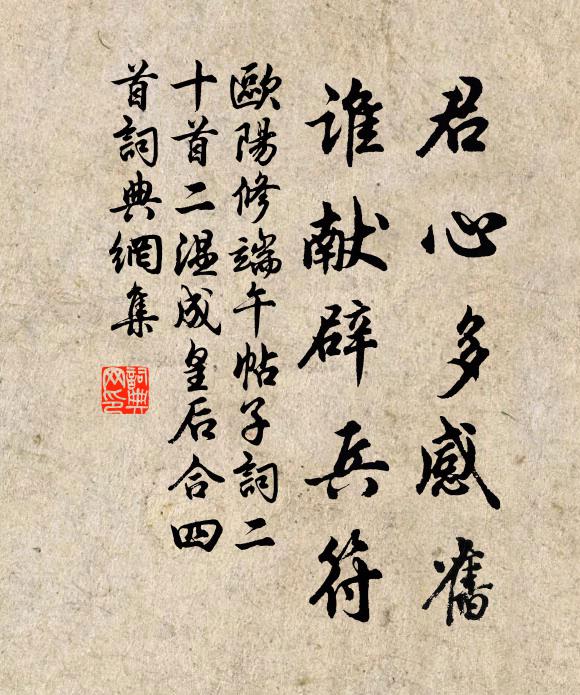 君心多感舊
谁献辟兵符
歐陽修端午帖子詞二
十首二温成皇后合四
首詞典網集
詞典
网印